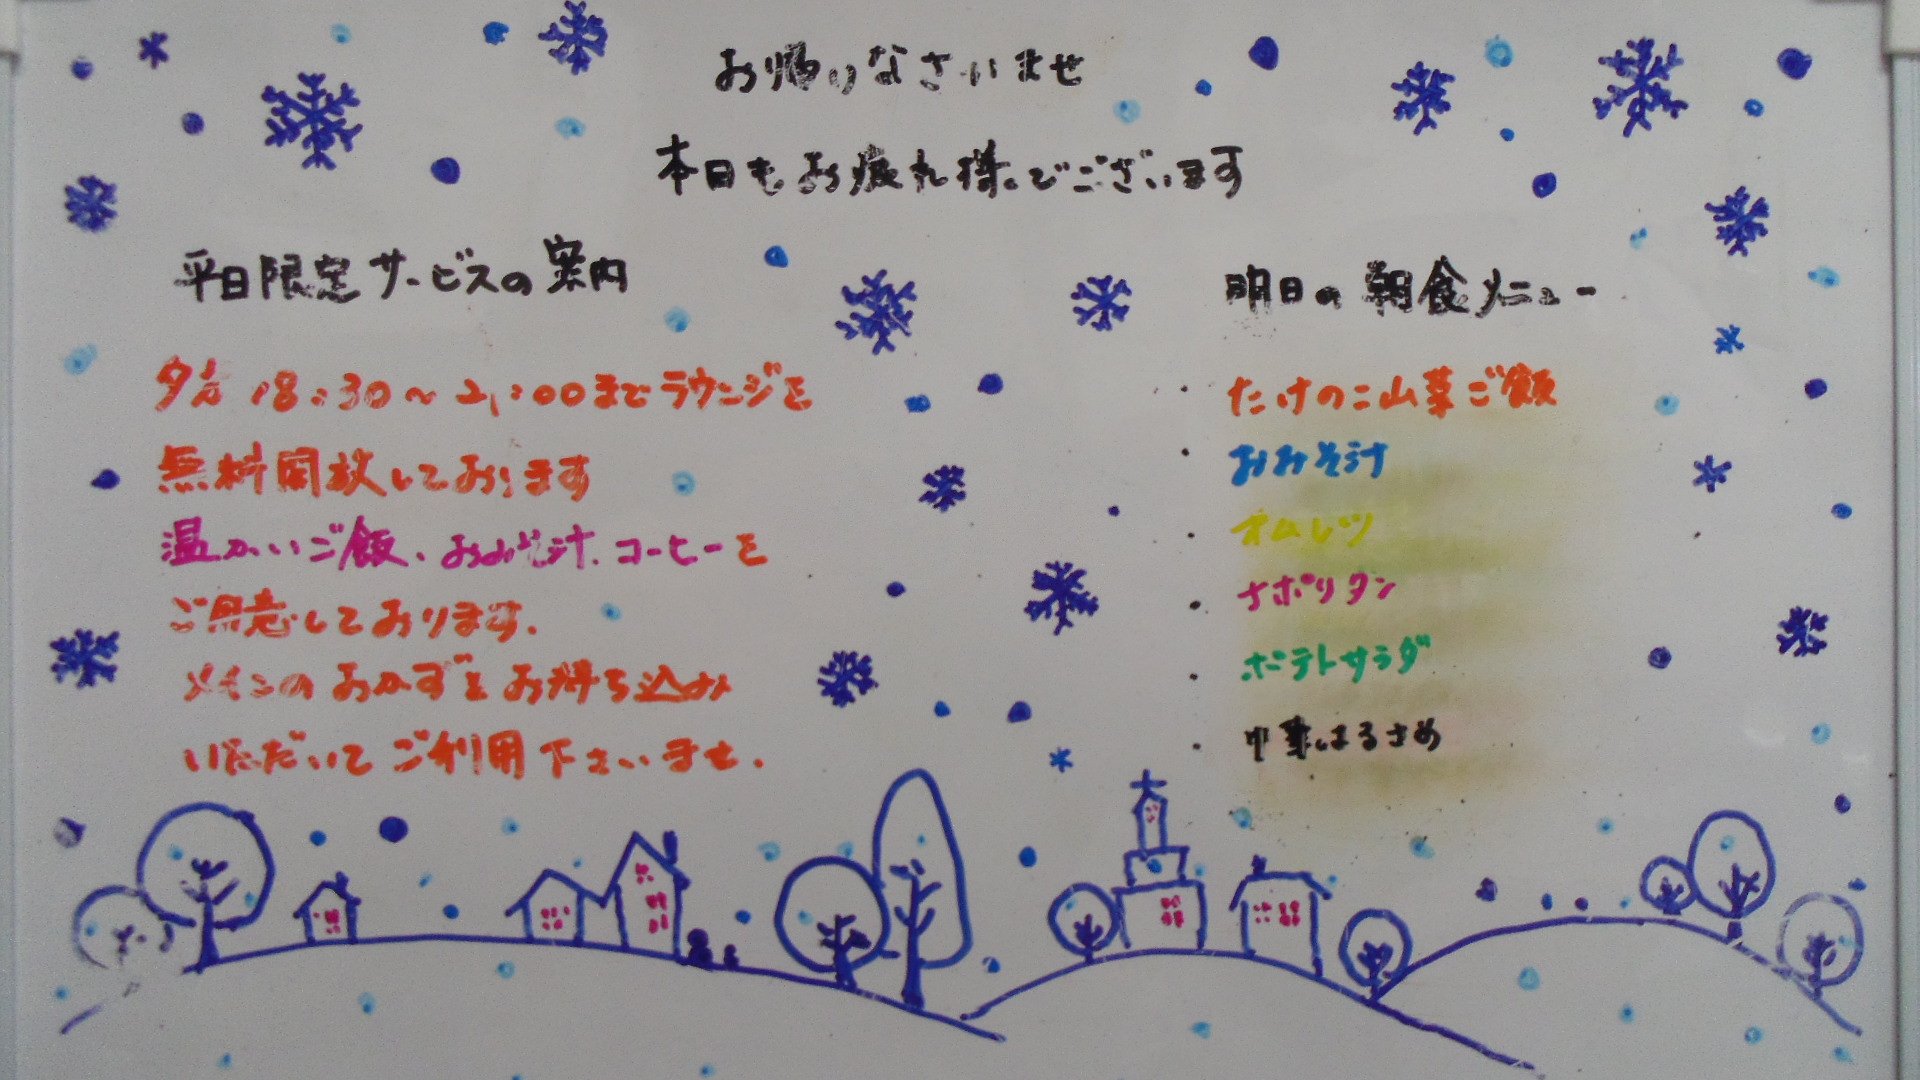 お帰りなさいませ
本日もお疲れ様でございます
平日限定サービスの案内
夕方 18:30～21:00までラウンジを
無料開放しております
温かいご飯、おみそ汁、コーヒーを
ご用意しております。
メインのおかずをお持ち込み
いただいてご利用下さいませ。
明日の朝食メニュー
・たけのこ山菜ご飯
・おみそ汁
・オムレツ
・ナポリタン
・ポテトサラダ
・中華はるさめ